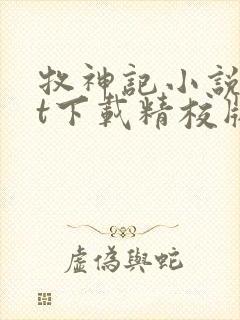 牧神記小說
t下載精校版
虛偽與蛇